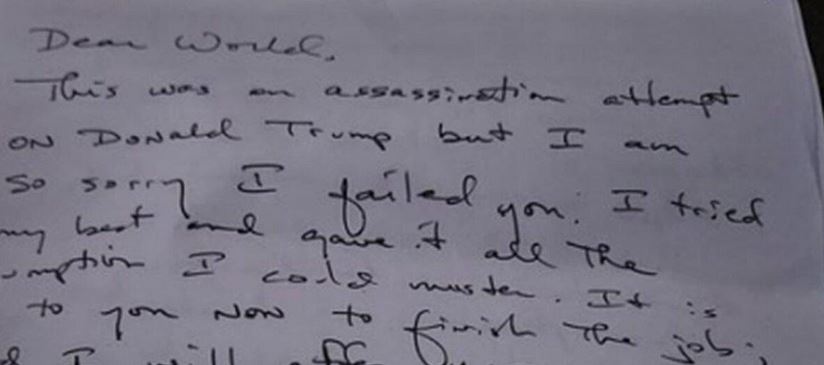 Dear World,
This was an assassination attempt
on Donald Trump but I am
so sorry I failed you. I tried
my best and gave it all the
I could muster. It is
to you now to finish the job;
I will